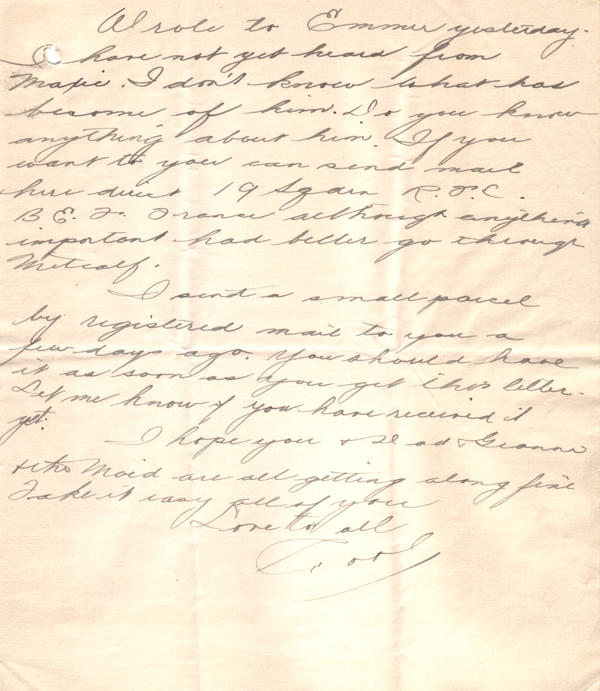 Wrote to Emmer yesterday.
I have not yet heard from
Maxie. I don't know what has
become of him. Do you know
anything about him. If you
want to you can send mail
here direct 19 Sqdrn R.F.C.
B.E.F. France although anything
important had better go through
Metcalf.
I sent a small parcel
by registered mail to you a
few days ago. You should have
it as soon as you get this letter.
Let me know if you have received it
yet.
I hope you & Dad &
& the Maid are all getting along fine
Take it easy all of you
Love to all